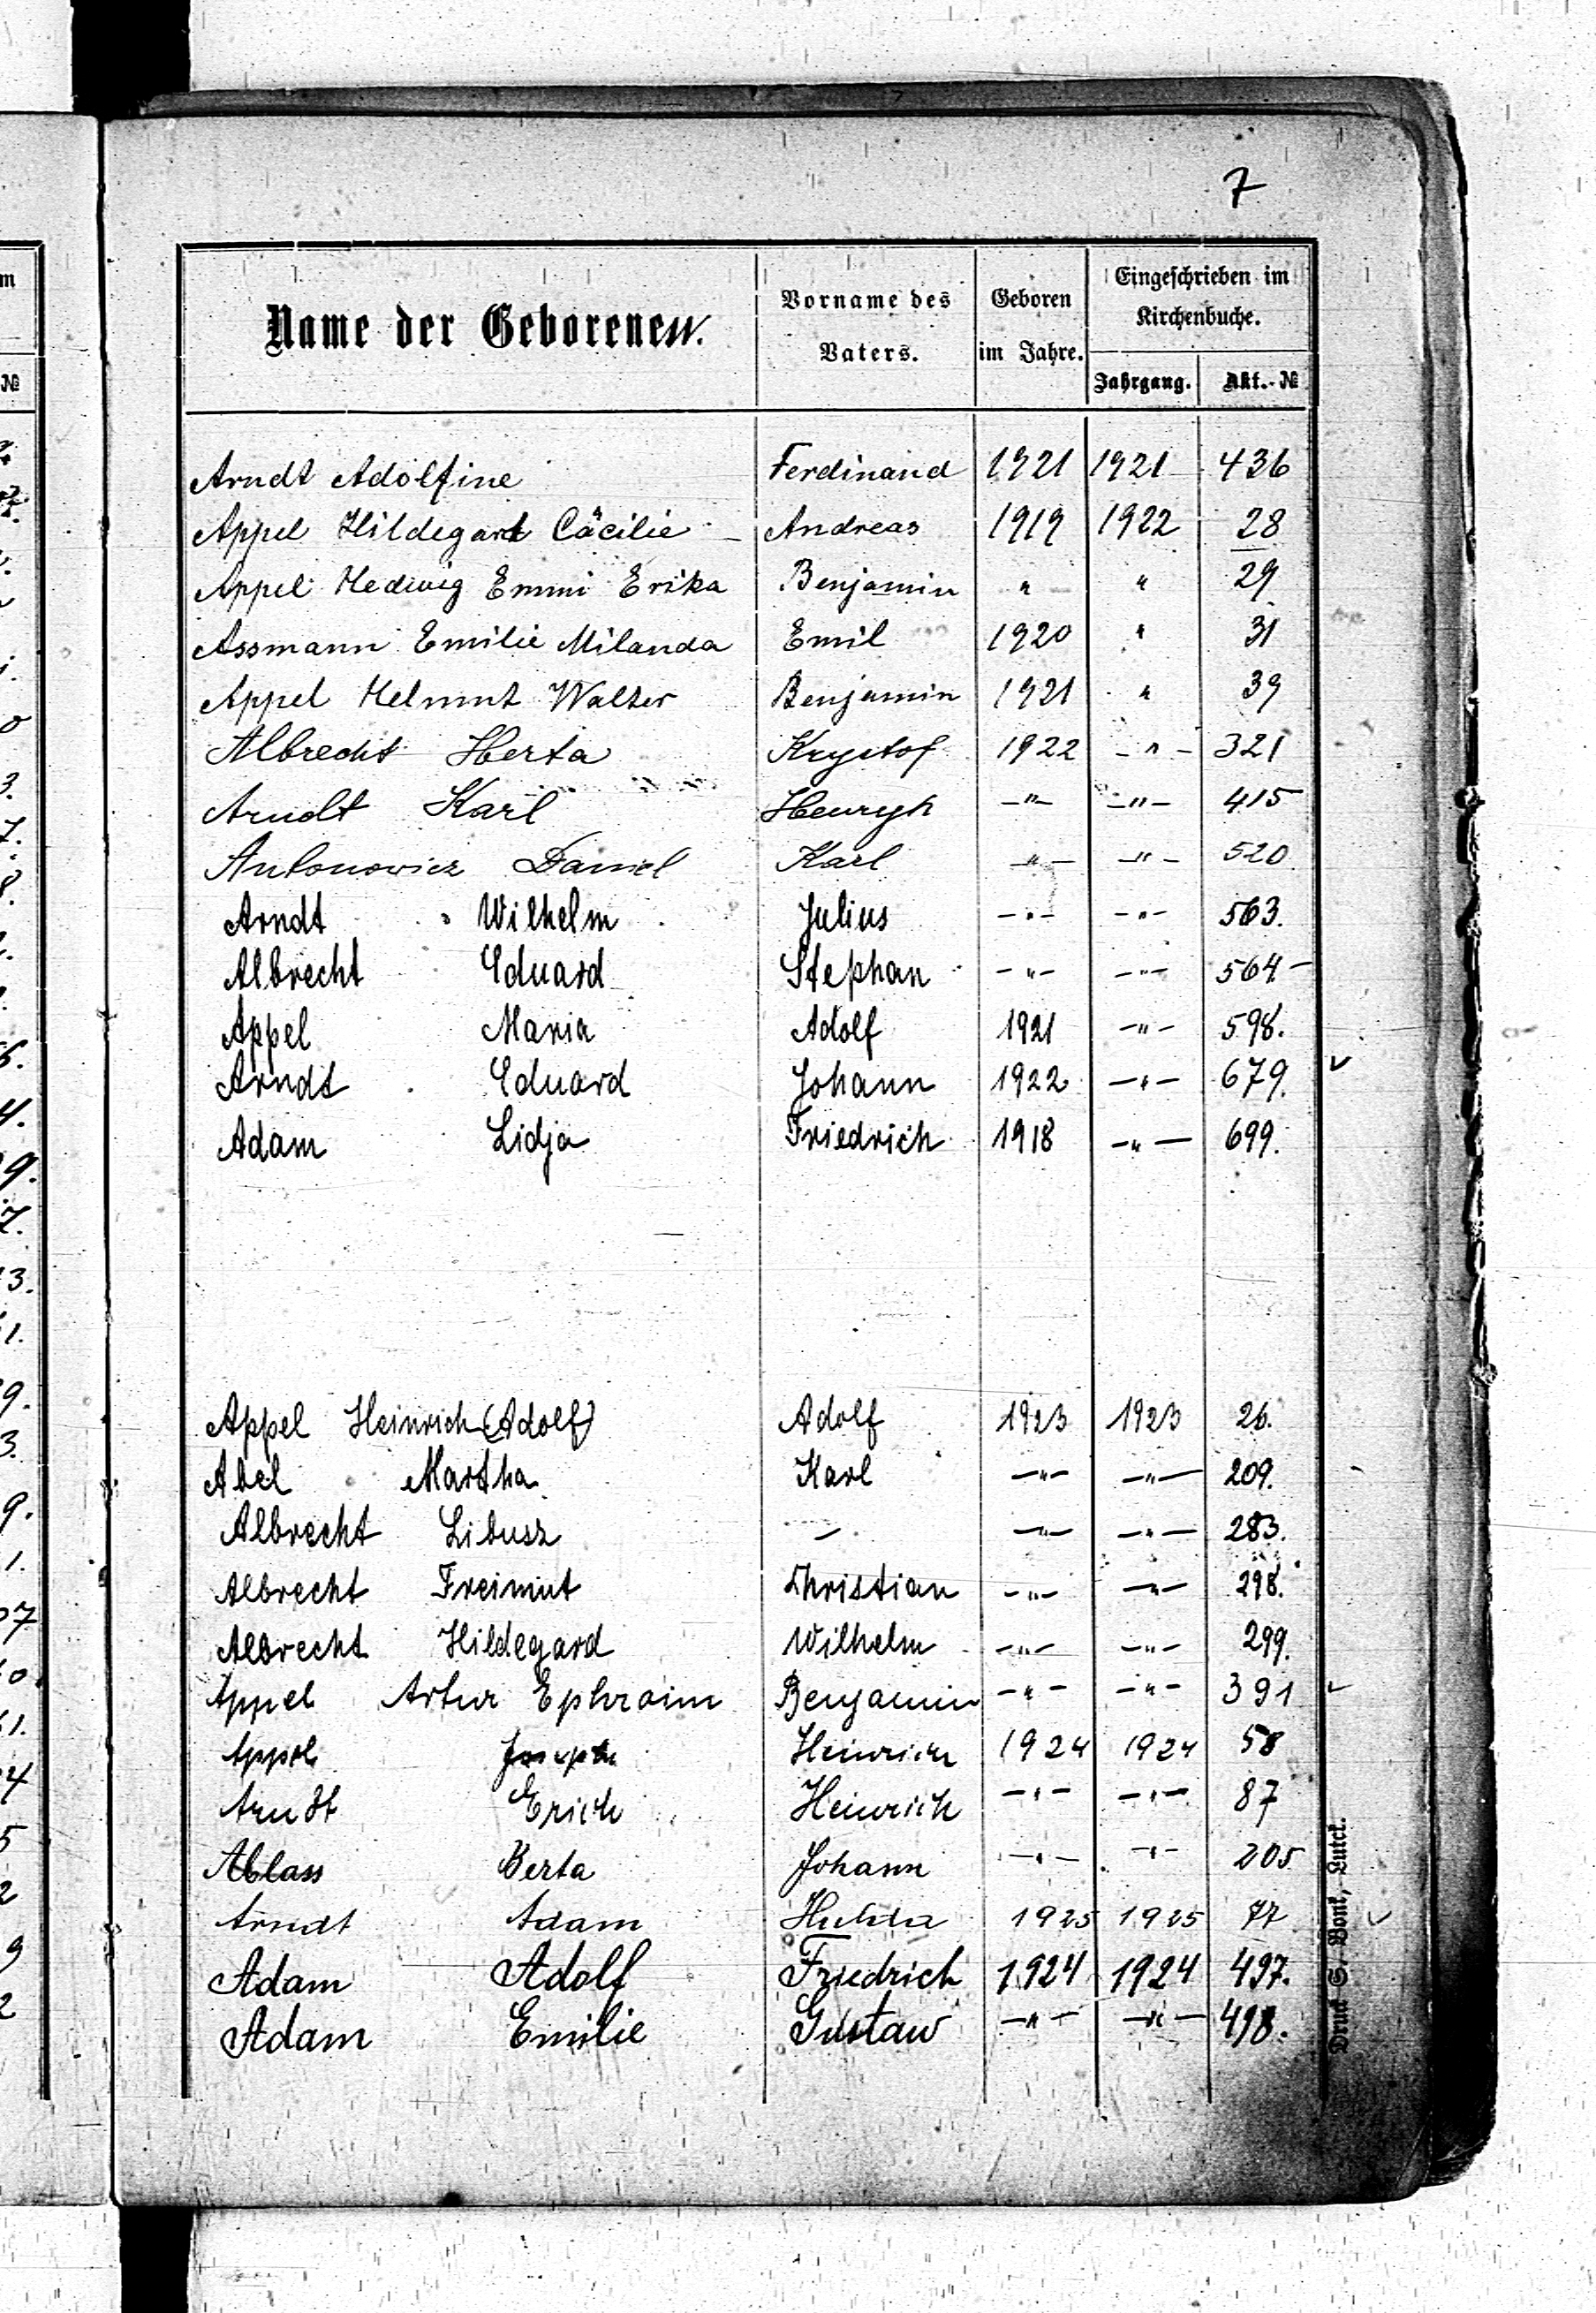 7
Name der Geborenen.
Vorname des Vaters.
Geboren im Jahre.
Eingeschrieben im Kirchenbuche.
Jahrgang. Akt.-№
Arndt Adolfine Ferdinand 1921 1921 436
Appel Hildegard Cäcilie Andreas 1919 1922 28
Appel Hedwig Emmi Erika Benjamin " " 29
Assmann Emilie Milanda Emil 1920 " 31
Appel Helmut Walter Benjamin 1921 " 39
Albrecht Herta Krystof 1922 -"- 321
Arndt Karl Henryh -"- -"- 415
Antonowicz Daniel Karl -"- -"- 520
Arndt Wilhelm Julius -"- -"- 563.
Albrecht Eduard Stephan -"- -"- 564
Appel Maria Adolf 1921 -"- 598.
Arndt Eduard Johann 1922 -"- 679.
Adam Lidja Friedrich 1918 -"- 699.
Appel Heinrich (Adolf) Adolf 1923 1923 26.
Abel Martha Karl -"- -"- 209.
Albrecht Libusz – -"- -"- 283.
Albrecht Freimut Christian -"- -"- 298.
Albrecht Hildegard Wilhelm -"- -"- 299.
Appel Artur Ephraim Benjamin -"- -"- 391
Appel Joseph Heinrich 1924 1924 58
Arndt Erich Heinrich -"- -"- 87
Ablass Berta Johann -"- -"- 205
Arndt Adam Hulda 1925 1925 77
Adam Adolf Friedrich 1924 1924 497.
Adam Emilie Gustaw -"- -"- 498.
Druck S. Bonk, Lutck.